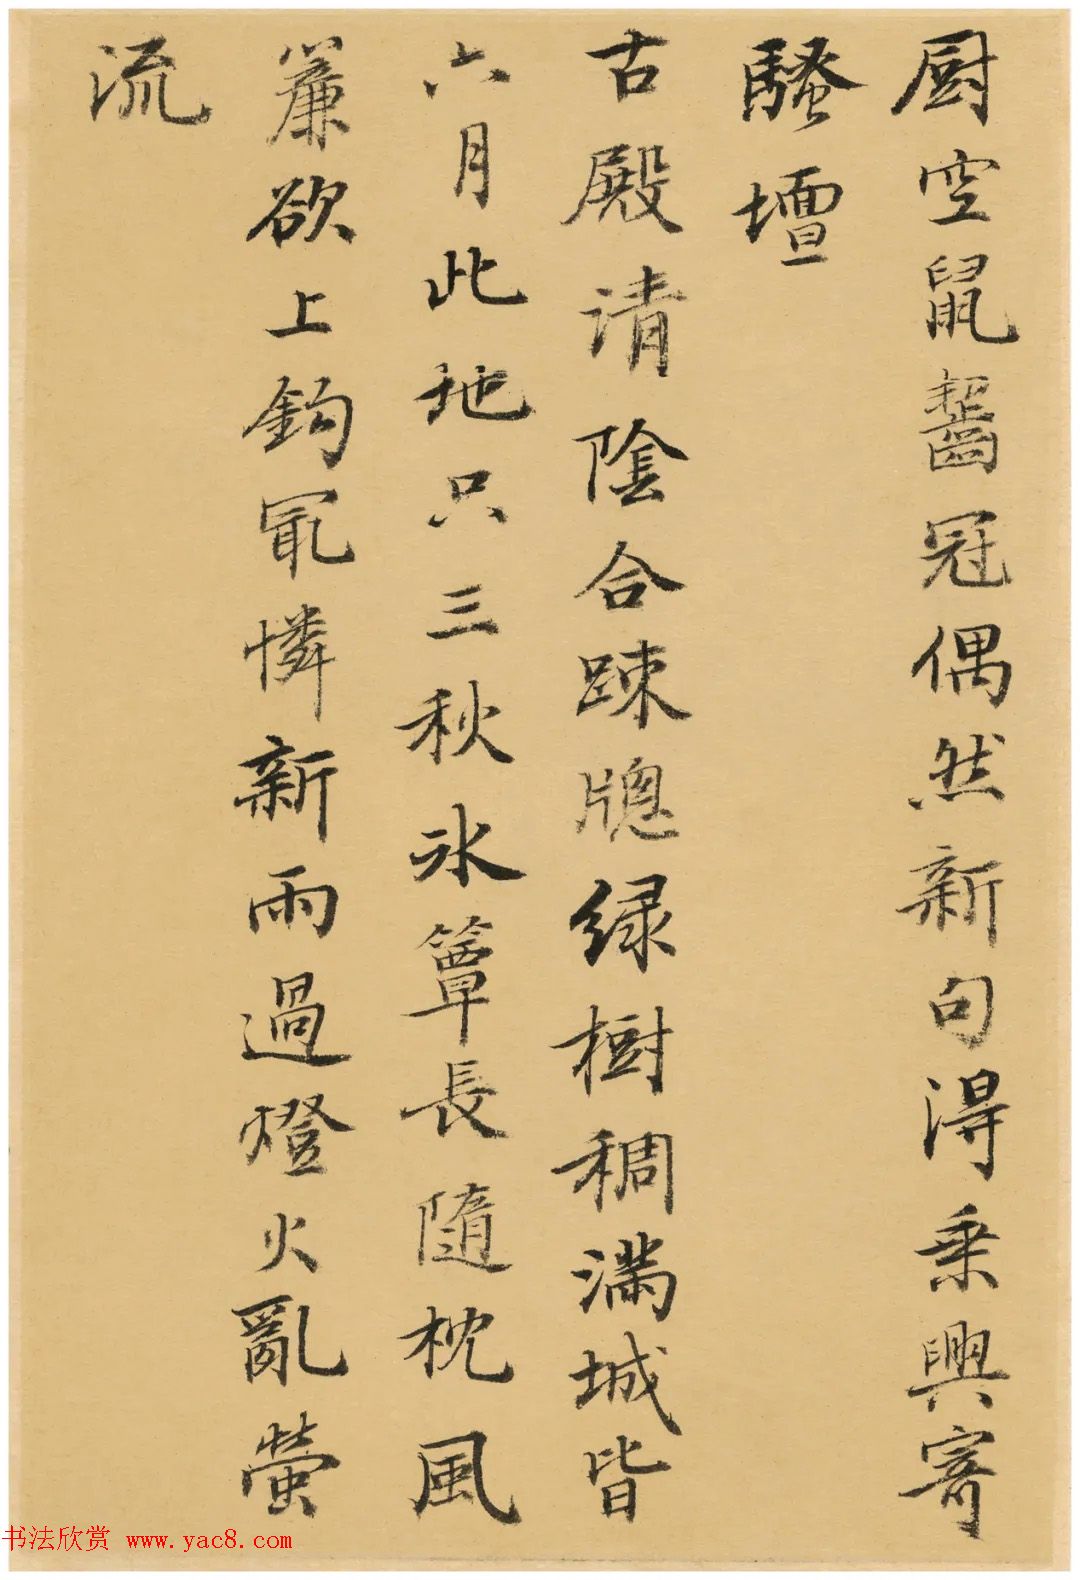 厨空鼠齧冠偶然新句得乗興寄
騷壇
古殿请陰合踈牕緑樹稠满城皆
六月此地只三秋氷簟長隨枕風
簾欲上鈎冣憐新雨過燈火亂螢
流
书法欣赏 www.yac8.com